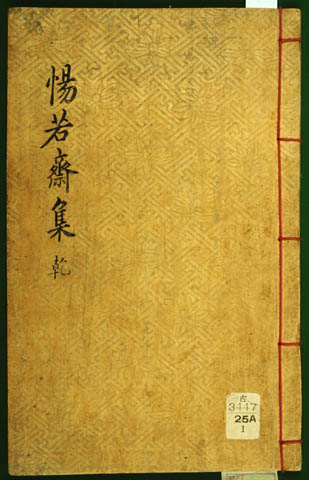 惕若齋集 乾
古
3447
25A
1